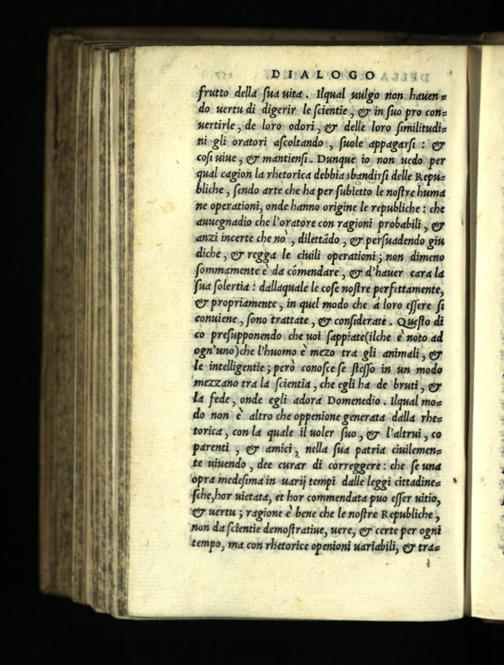 DIALOGO
frutto della sua uita. Ilqual uulgo non hauen=
do uertu di digerir le scientie, & in suo pro con=
uertirle, de loro odori, & delle loro similitudi=
ni gli oratori ascoltando, suole appagarsi: &
cosi uiue, & mantiensi. Dunque io non uedo per
qual cagion la rhetorica debbia sbandirsi delle Repu=
bliche, sendo arte che ha per subietto le nostre huma
ne operationi, onde hanno origine le republiche: che
auuegnadio che l'oratore con ragioni probabili, &
anzi incerte che nò, dilettãdo, & persuadendo giu
diche, & regga le ciuili operationi; non dimeno
sommamente è da cómendare, & d'hauer cara la
sua solertia: dallaquale le cose nostre perfettamente,
& propriamente, in quel modo che a loro essere si
conuiene, sono trattate, & considerate. Questo di
co presupponendo che uoi sappiate(ilche è noto ad
ogn'uno)che l'huomo è mezo tra gli animali, &
le intelligentie; però conosce se stesso in un modo
mezzano tra la scientia, che egli ha de bruti, &
la fede, onde egli adora Domenedio. Ilqual mo=
do non è altro che oppenione generata dalla rhe=
torica, con la quale il uoler suo, & l'altrui, co
parenti, & amici, nella sua patria ciuilemen=
te uiuendo, dee curar di correggere: che se una
opra medesima in uarij tempi dalle leggi cittadine=
sche,hor uietata, et hor commendata puo esser uitio,
& uertu; ragione è bene che le nostre Republiche,
non da scientie demostratiue, uere, & certe per ogni
tempo, ma con rhetorice openioni uariabili, & tra=